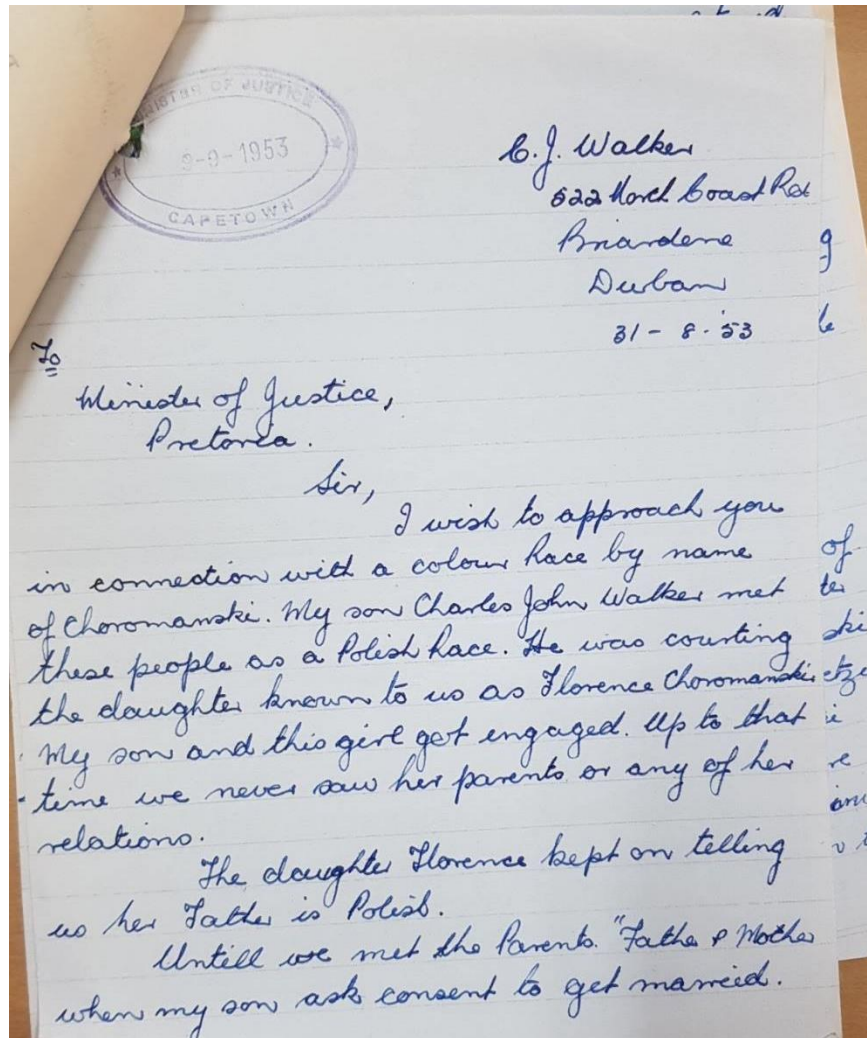 MINISTER OF JUSTICE
9-9-1953
CAPETOWN
C. J. Walker
522 North Coast Rd
Briardene
Durban
31 - 8 - 53
To
Minister of Justice,
Pretoria.
Sir,
I wish to approach you
in connection with a colour Race by name
of Choromanski. My son Charles John Walker met
these people as a Polish Race. He was courting
the daughter known to us as Florence Choromanski
My son and this girl got engaged. Up to that
time we never saw her parents or any of her
relations.
The daughter Florence kept on telling
us her Father is Polish.
Untill we met the Parents. "Father & Mother
when my son ask consent to get married.